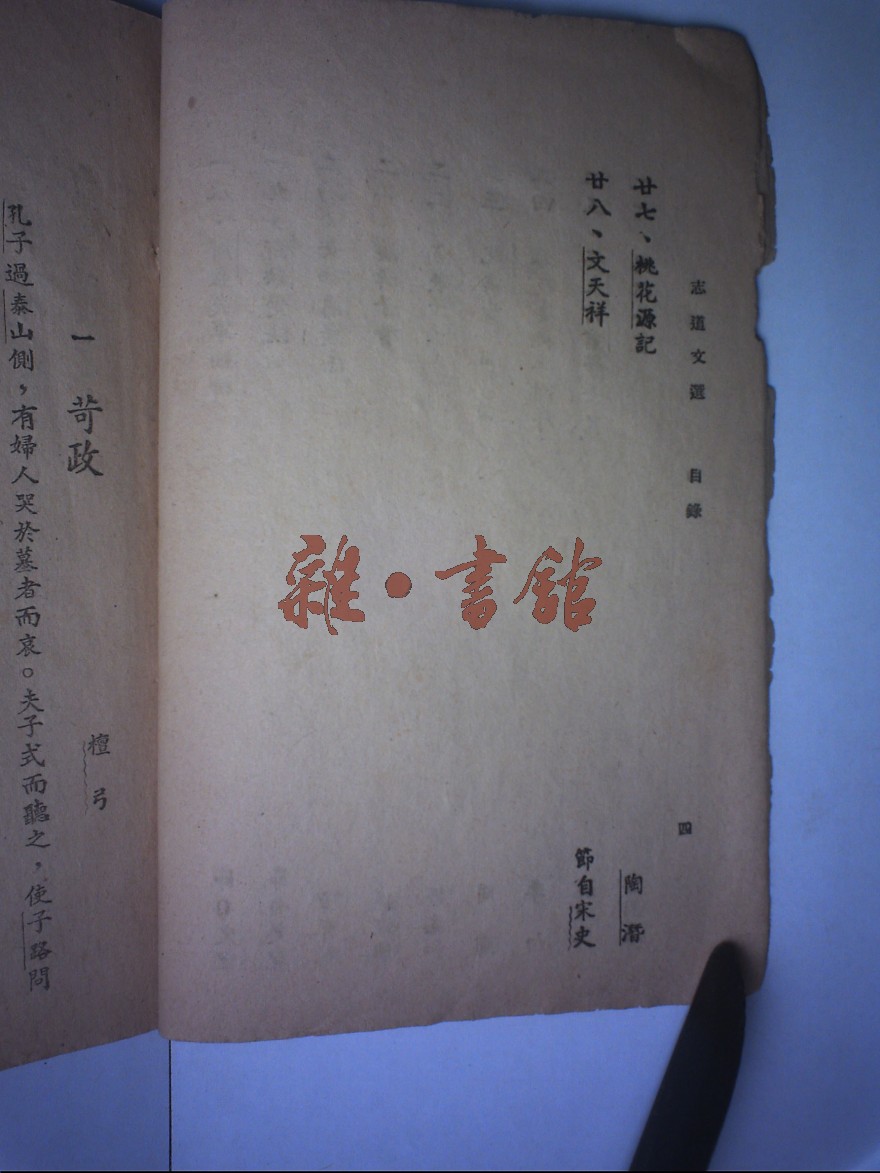 志道文選　目錄　四
廿七、桃花源記　陶潛
廿八、文天祥　節自宋史
雜·書館
一　苛政　檀弓
孔子過泰山側，有婦人哭於墓者而哀。夫子式而聽之，使子路問